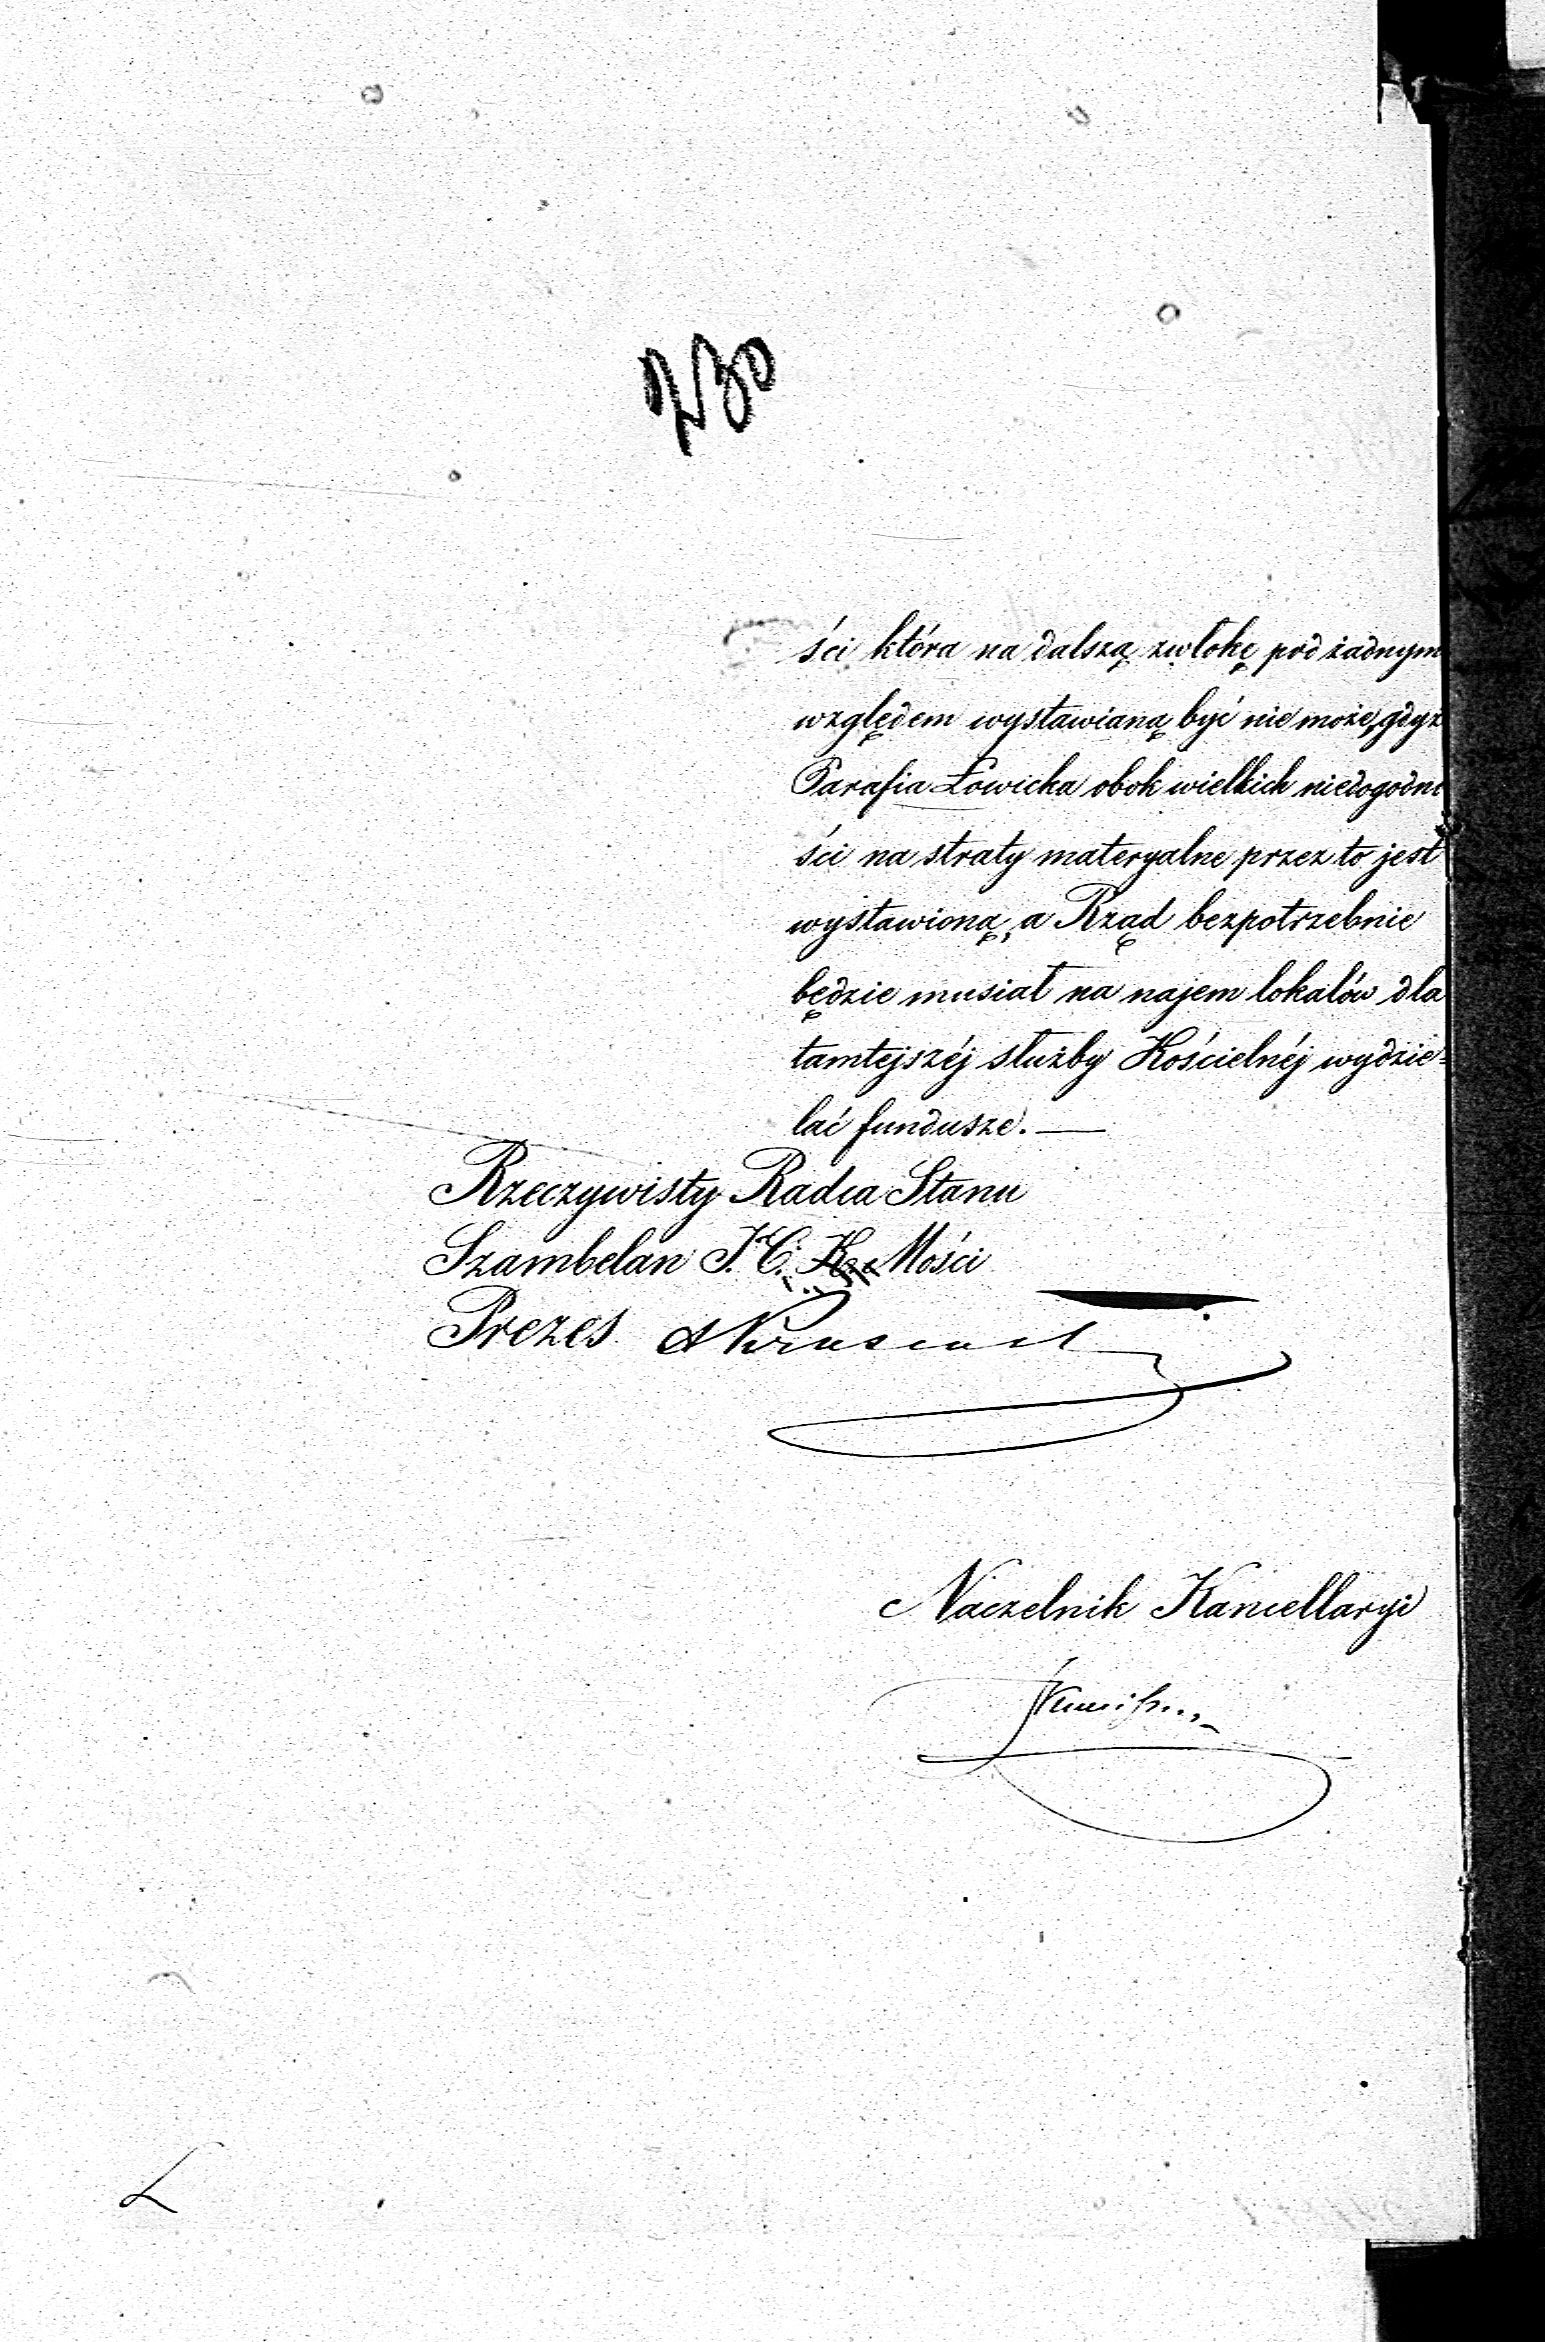 ści która na dalszą zwłokę pod żadnym
względem wystawianą być nie może, gdyż
Parafia Łowicka obok wielkich niedogodno
ści na straty materyalne przez to jest
wystawioną, a Rząd bezpotrzebnie
będzie musiał na najem lokalów dla
tamtejszéj służby Kościelnéj wydzie=
lać fundusze. —
Rzeczywisty Radca Stanu
Szambelan J. C. K. Mości
Prezes
Naczelnik Kancellaryi
L